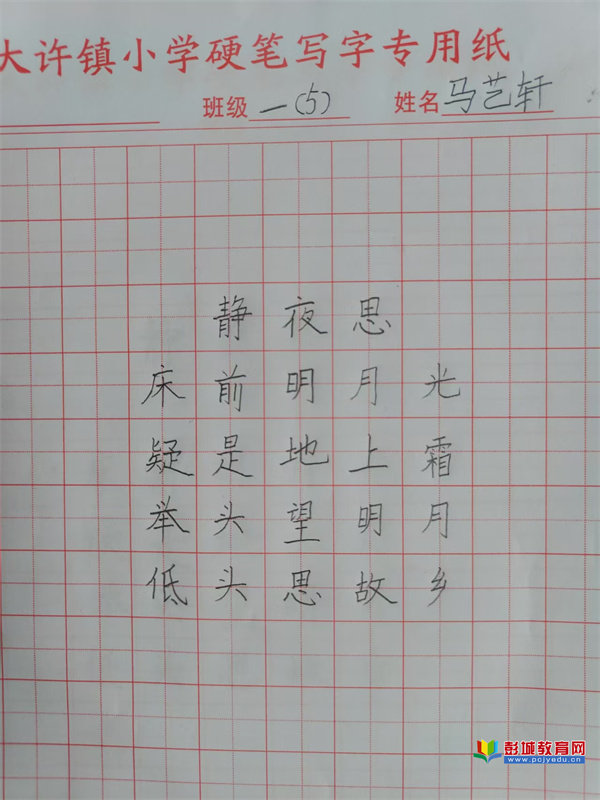 大许镇小学硬笔写字专用纸
班级 一(5) 姓名 马艺轩
静夜思
床前明月光
疑是地上霜
举头望明月
低头思故乡
彭城教育网
www.pcjyedu.cn